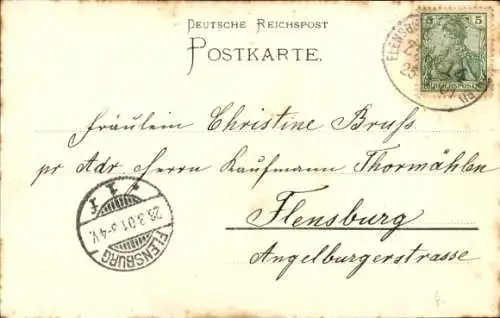 DEUTSCHE REICHSPOST
POSTKARTE.
5 5
REICHSPOST
FLENSB
25
Fräulein Christine Bruhs
pr Adr Herrn Kaufmann Thormählen
Flensburg
Angelburgerstrasse
FLENSBURG
26.3.01.3-4V.
* 1 f